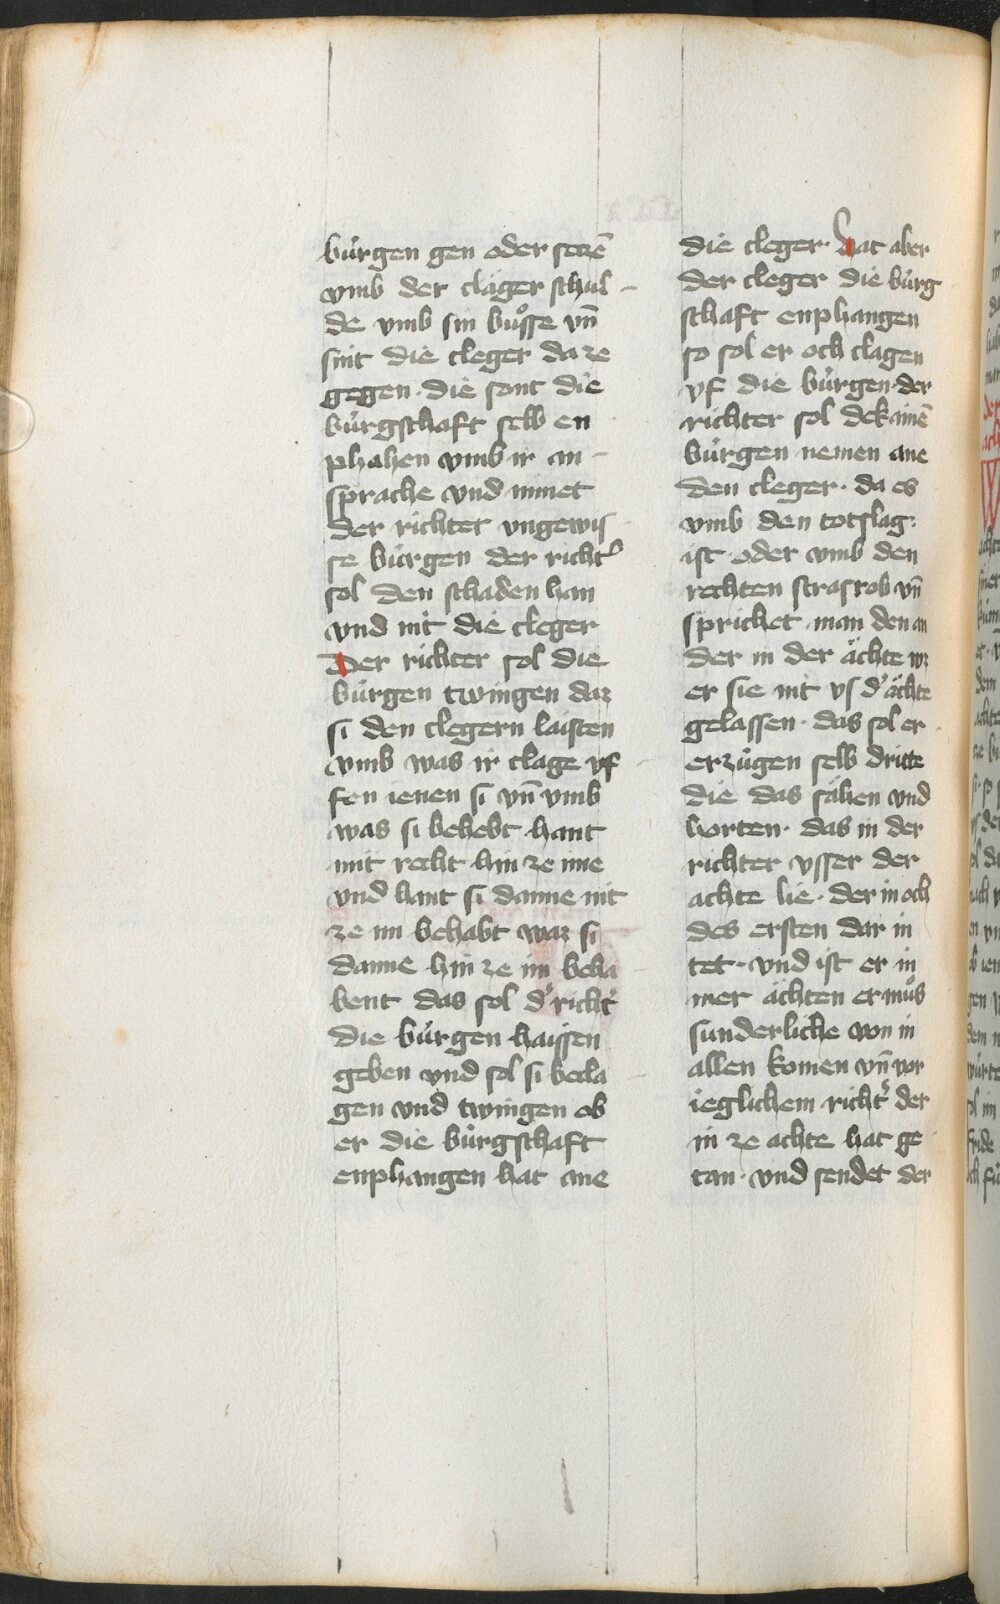 bürgen gen oder setzē
vmb der clager schul-
de vmb sin bůsse vn̄
sint die cleger da ze
gegen · die sont die
bürgschaft selb en
phahen vmb ir an-
sprache vnd nimet
der richter vngewis
se bürgen der richt'
sol den schaden han
vnd nit die cleger
Der richter sol die
bürgen twingen daz
si den clegern laisten
vmb was ir clage vf
fen ienen si vn̄ vmb
was si behebt hant
mit recht hin ze ime
vnd hant si danne nit
ze im behabt waz si
danne hin ze im beha
bent das sol d' richt'
die bürgen haissen
geben vnd sol si becla
gen vnd twingen ob
er die bürgschaft
enphangen hat ane
die cleger · hat aber
der cleger die bürg
schaft enphangen
so sol er och clagen
vf die bürgen · der
richter sol dekainē
bürgen nemen ane
den cleger · da es
vmb den totslag
ist · oder vmb den
rechten strasrob vn̄
sprichet man den an
der in der ächte wz
er sie nit vs d' ächte
gelassen · das sol er
erzügen selb dritte
die das sähen vnd
horten · das in der
richter vsser der
achte lie · der in och
des ersten dar in
tet · vnd ist er in
mer ächten er můs
sunderliche von in
allen komen vn̄ vor
ieglichem richt' der
in ze achte hat ge
tan · vnd sendet der